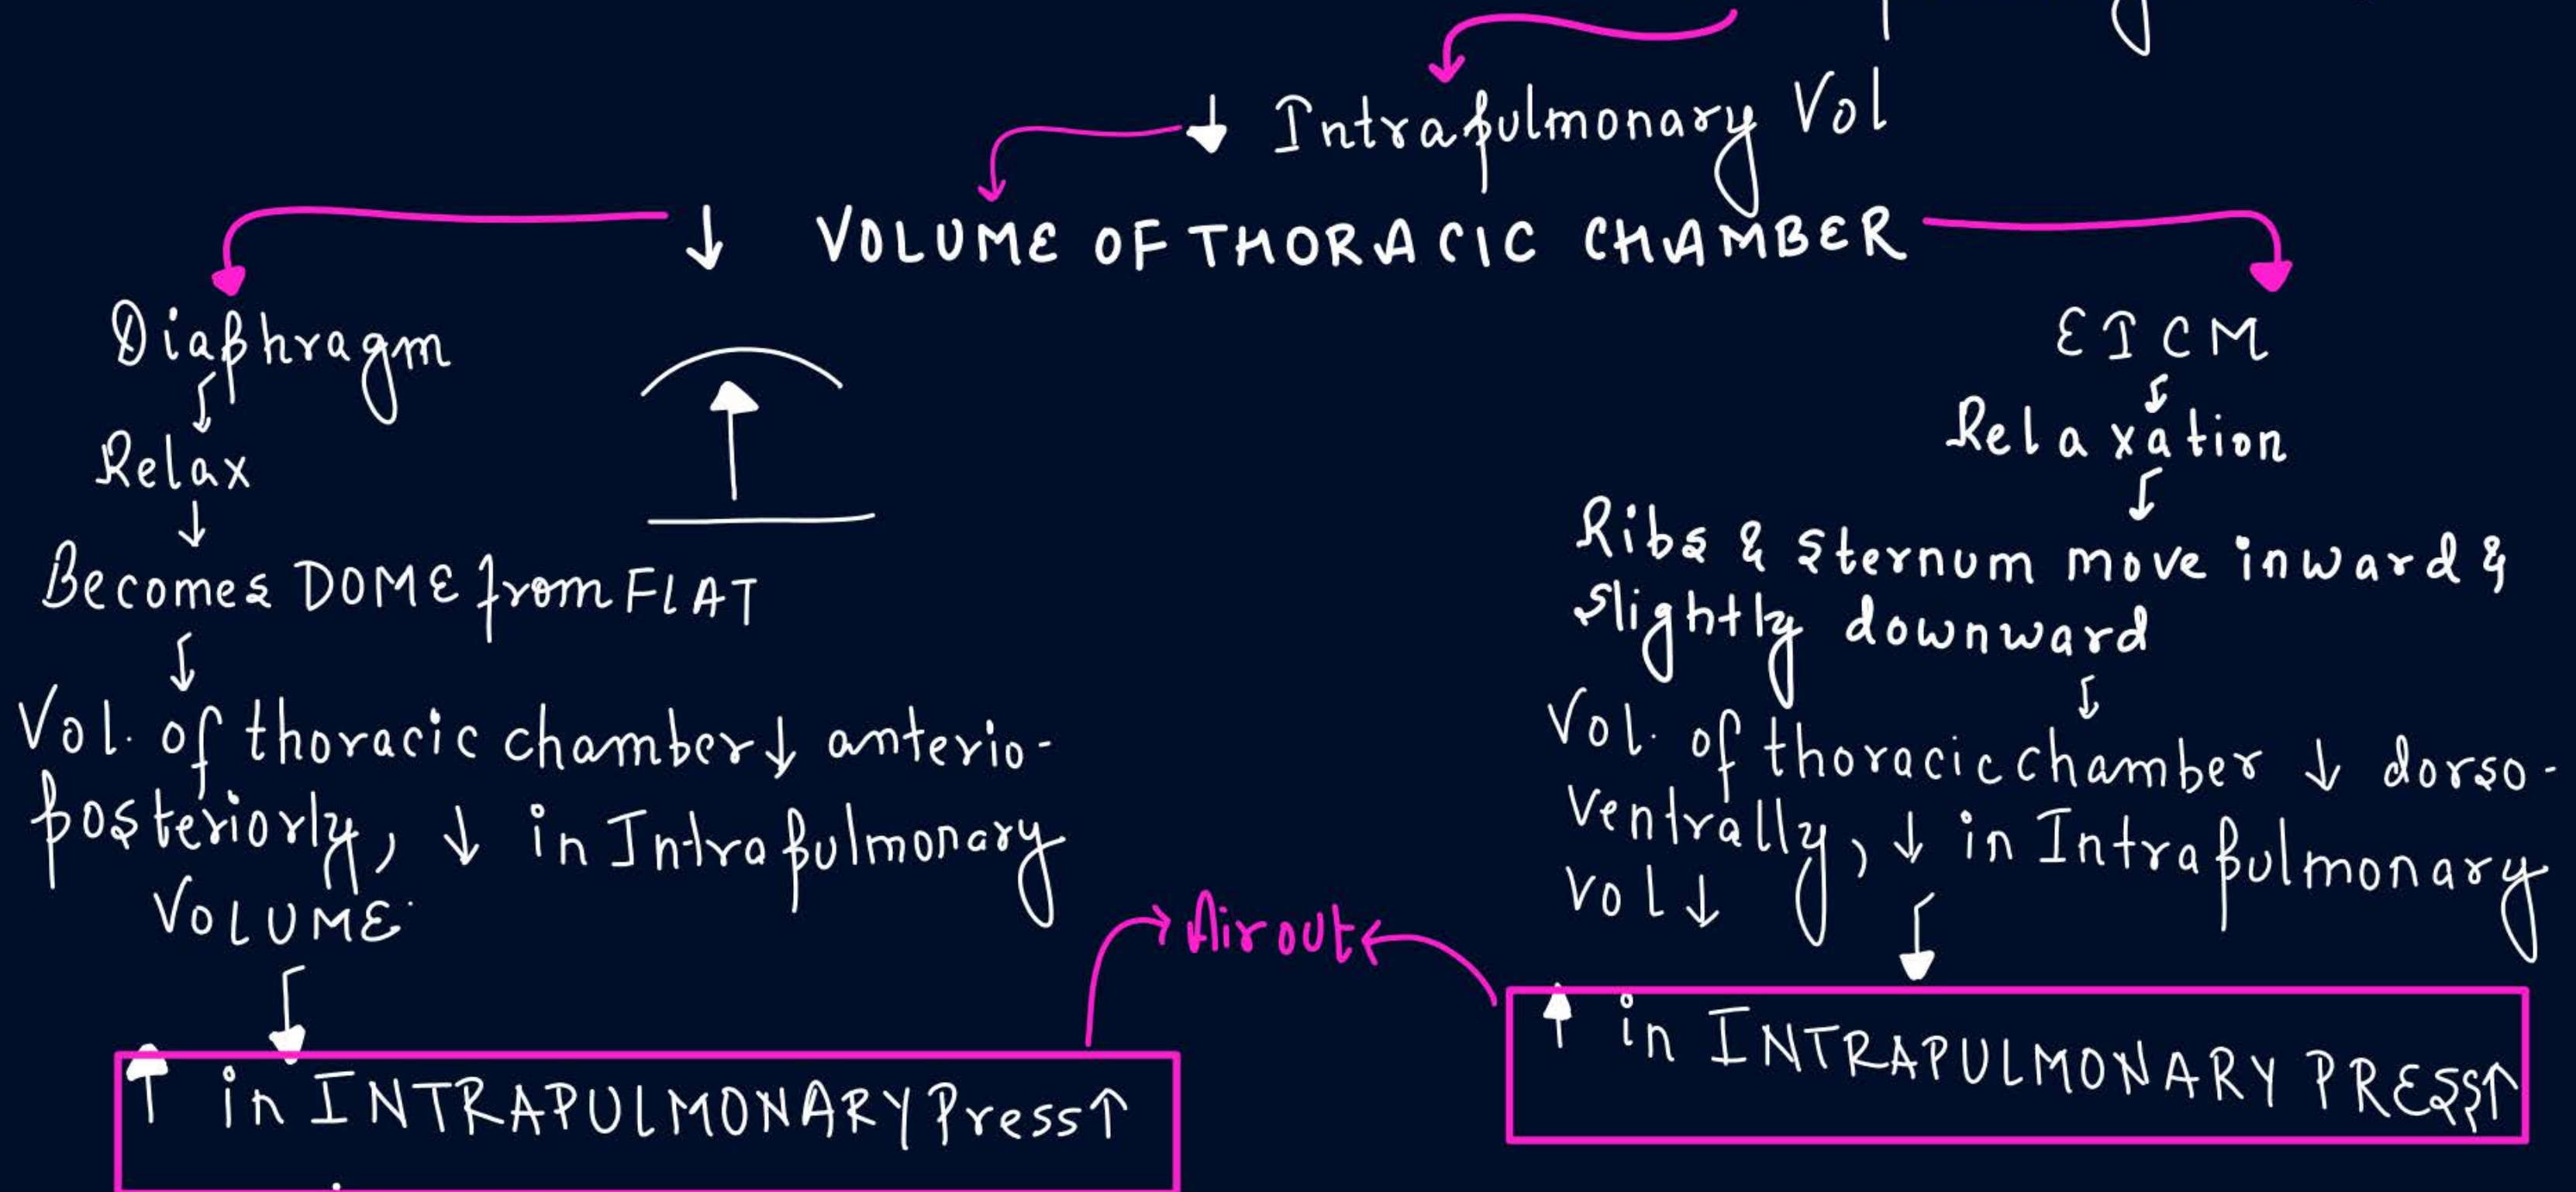 ↓ Intrapulmonary Vol
↓ VOLUME OF THORACIC CHAMBER
Diaphragm
↓
Relax
↓
Becomes DOME from FLAT
↓
Vol. of thoracic chamber ↓ anterio-
posteriorly, ↓ in Intrapulmonary
VOLUME
↑ in INTRAPULMONARY Press ↑
Air out
EICM
↓
Relaxation
↓
Ribs & Sternum move inward &
slightly downward
↓
Vol. of thoracic chamber ↓ dorso-
ventrally, ↓ in Intrapulmonary
vol ↓
↑ in INTRAPULMONARY PRESS ↑